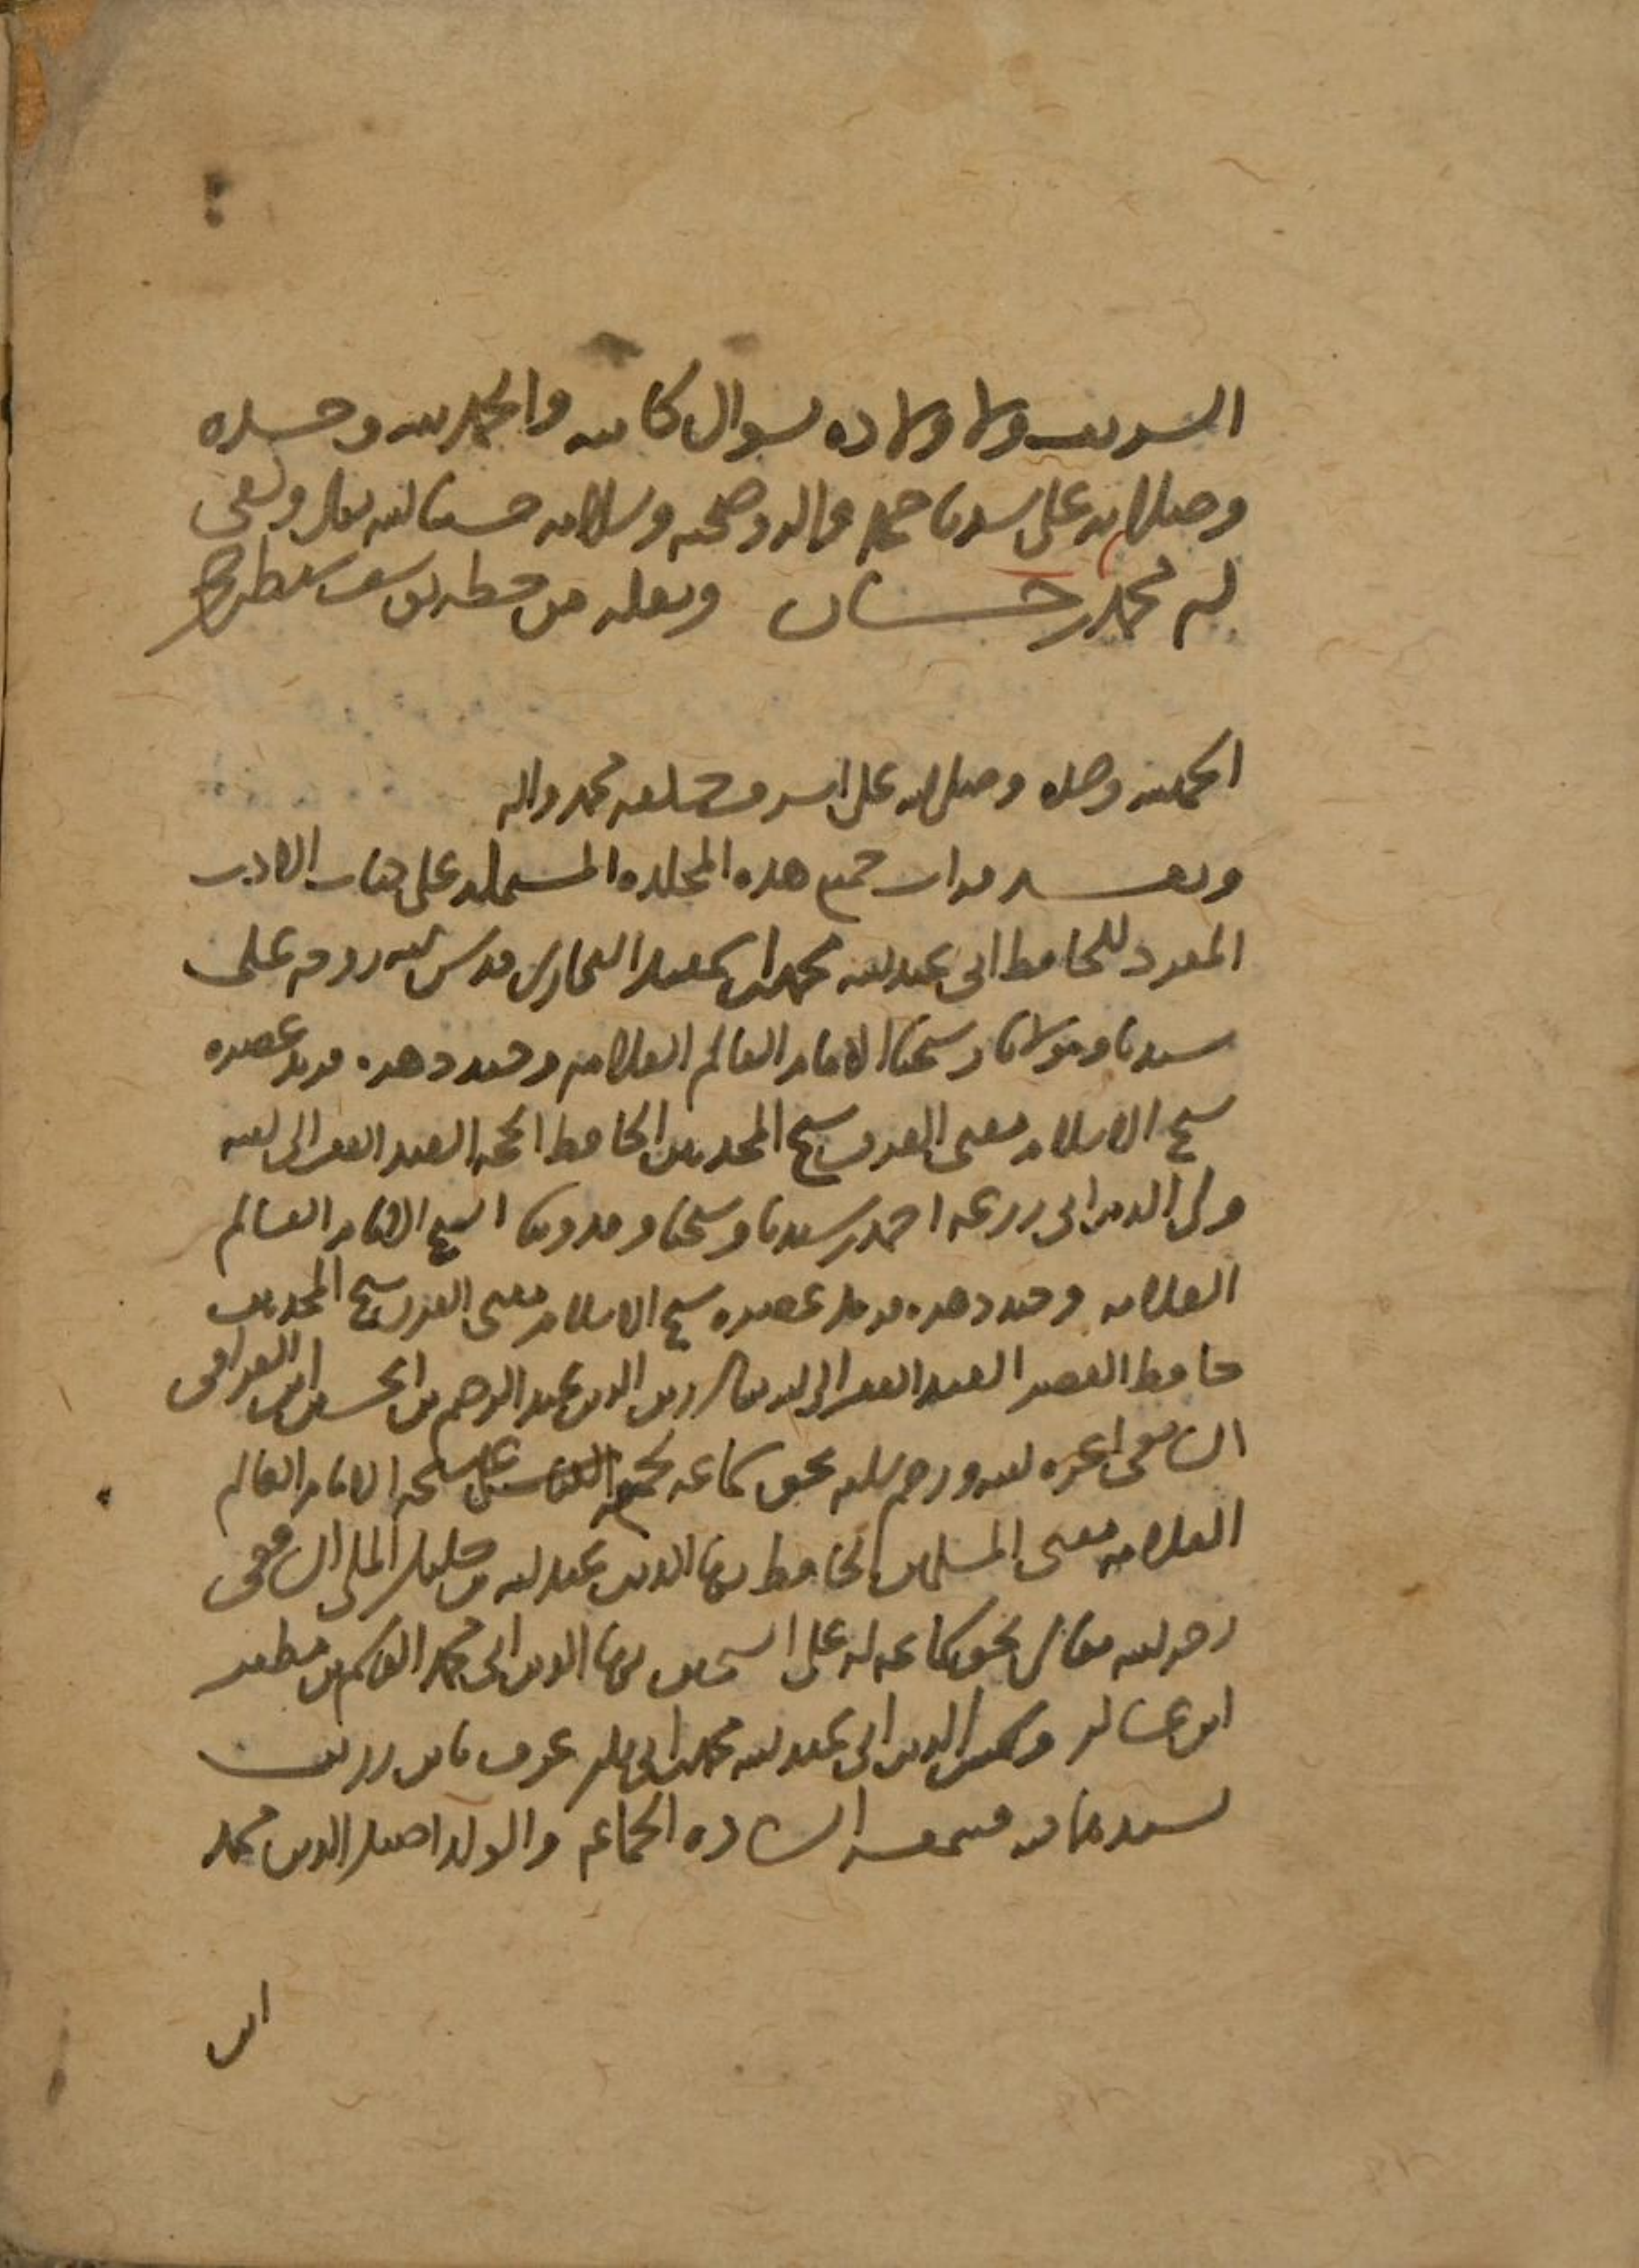 الشريف ولاولاده بسؤال كاتبه والحمد لله وحده
وصلى الله على سيدنا محمد واله وصحبه وسلامه حسبنا الله تعالى وكفى
محمد حسان ونقله من خطه يوسف سبط
الحمد لله وحده وصلى الله على اشرف خلقه محمد واله
وبعد قرات جميع هذه المجلده المشتمله على كتاب الادب
المفرد للحافظ ابى عبد الله محمد بن اسمعيل البخارى قدس الله روحه على
سيدنا ومولانا وشيخنا الامام العالم العلامه وحيد دهره فريد عصره
شيخ الاسلام مفتى الفرق شيخ المحدثين الحافظ الحجه العبد الفقير الى الله
ولى الدين ابى زرعه احمد بن سيدنا وشيخنا وقدوتنا الشيخ الامام العالم
العلامه وحيد دهره فريد عصره شيخ الاسلام مفتى الفرق شيخ المحدثين
حافظ العصر العبد الفقير الى الله تعالى زين الدين عبد الرحيم بن الحسين ابن العراقى
الشافعى اعزه الله ورحم سلفه بحق سماعه لجميع الكتاب على شيخه الامام العالم
العلامه مفتى المسلمين الحافظ بهاء الدين عبد الله بن خليل المكى الشافعى
رحمه الله تعالى بحق سماعه له على الشيخين بهاء الدين ابى محمد القاسم بن مظفر
ابن عساكر وشمس الدين ابى عبد الله محمد بن ابى بكر عرف بابن زريق
بسندهما فيه فسمعه الساده الجماعه والولد اصيل الدين محمد
ابن